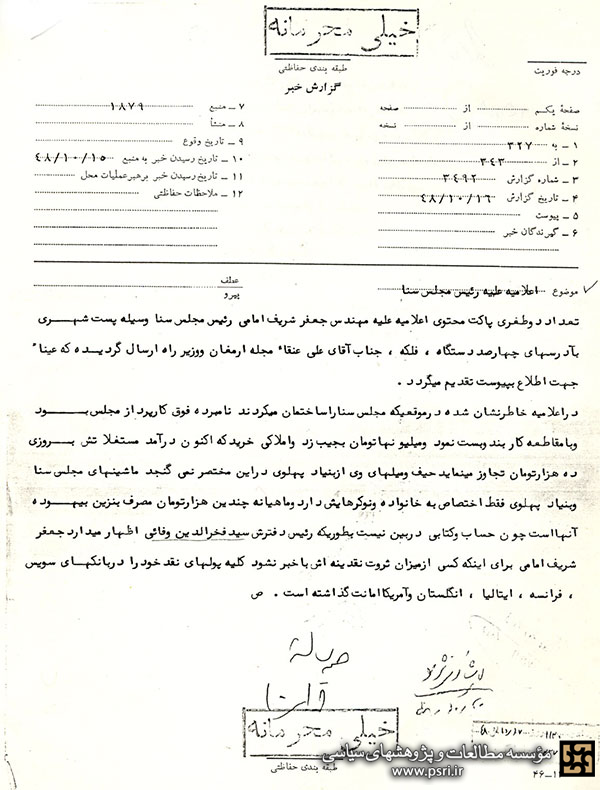 خیلی محرمانه
طبقه بندی حفاظتی
درجه فوریت
گزارش خبر
صفحهٔ یکم از صفحه
نسخهٔ شماره از نسخه
۱ ـ به ۳۲۷
۲ ـ از ۳۴۳
۳ ـ شماره گزارش ۳۴۹۲
۴ ـ تاریخ گزارش ۴۸/۱۰/۱۶
۵ ـ پیوست
۶ ـ گیرندگان خبر
۷ ـ منبع ۱۸۷۹
۸ ـ منشأ
۹ ـ تاریخ وقوع
۱۰ ـ تاریخ رسیدن خبر به منبع ۴۸/۱۰/۱۵
۱۱ ـ تاریخ رسیدن خبر برهبر عملیات محل
۱۲ ـ ملاحظات حفاظتی
موضوع اعلامیه علیه رئیس مجلس سنا
عطف
پیرو
تعداد دوطغری پاکت محتوی اعلامیه علیه مهندس جعفر شریف امامی رئیس مجلس سنا وسیله پست شهری
بآدرسهای چهارصد دستگاه ، فلکه ، جناب آقای علی عنقاء مجله ارمغان ووزیر راه ارسال گردیده که عیناً
جهت اطلاع بپیوست تقدیم میگردد .
دراعلامیه خاطرنشان شده درموقعیکه مجلس سنا راساختمان میکردند نامبرده فوق کارپرداز مجلس بود
وبامقاطعه کار بند وبست نمود ومیلیونها تومان بجیب زد واملاکی خرید که اکنون درآمد مستغلاتش بروزی
ده هزارتومان تجاوز مینماید حیف ومیلهای وی ازبنیاد پهلوی دراین مختصر نمی گنجد ماشینهای مجلس سنا
وبنیاد پهلوی فقط اختصاص به خانواده ونوکرهایش دارد وماهیانه چندین هزارتومان مصرف بنزین بیهوده
آنهااست چون حساب وکتابی دربین نیست بطوریکه رئیس دفترش سید فخرالدین وفائی اظهار میدارد جعفر
شریف امامی برای اینکه کسی ازمیزان ثروت نقدینه اش باخبر نشود کلیه پولهای نقد خود را دربانکهای سویس
، فرانسه ، ایتالیا ، انگلستان وآمریکا امانت گذاشته است . ص
خیلی محرمانه
طبقه بندی حفاظتی
مؤسسه مطالعات و پژوهشهای سیاسی
www.psri.ir